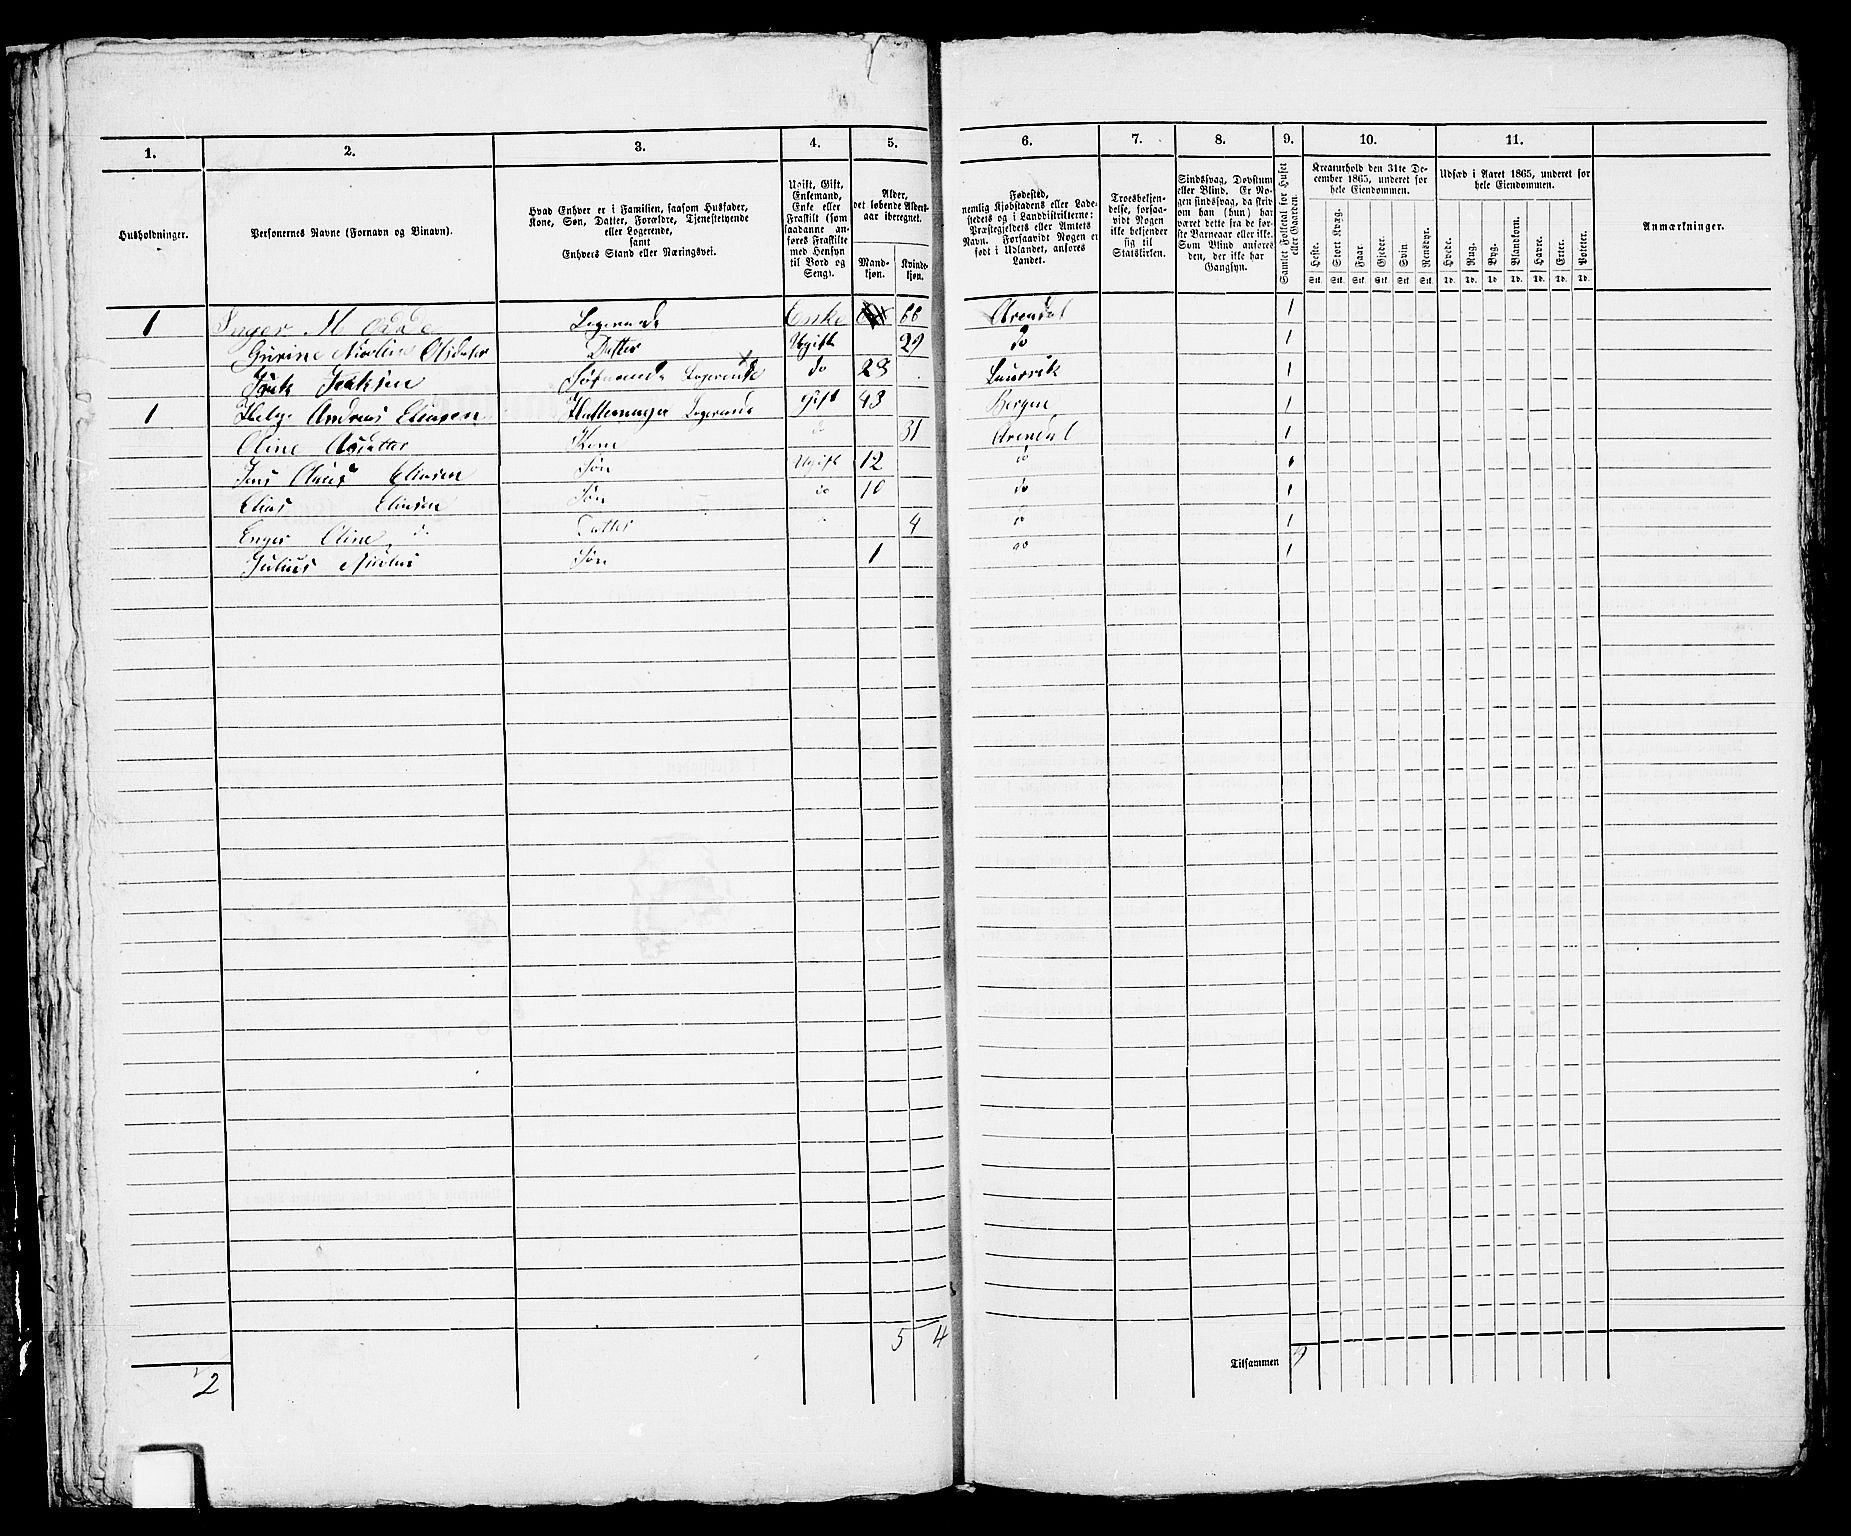 1. 2. 3. 4. 5. 6. 7. 8. 9. 10. 11.
Husholdninger.
Personernes Navne (Fornavn og Binavn).
Hvad Enhver er i Familien, saasom Husfader,
Kone, Søn, Datter, Forældre, Tjenestetyende
eller Logerende,
samt
Enhvers Stand eller Næringsvei.
Ugift, Gift,
Enkemand,
Enke eller
Fraskilt (som
saadanne an-
føres Fraskilte
med Hensyn
til Bord og
Seng).
Alder,
det løbende Alders-
aar iberegnet.
Mand-
kjøn.
Kvinde-
kjøn.
Fødested,
nemlig Kjøbstadens eller Lade-
stedets og i Landdistrikterne:
Præstegjeldets eller Amtets
Navn. Forsaavidt Nogen er
født i Udlandet, anføres
Landet.
Troesbekjen-
delse, forsaa-
vidt Nogen
ikke bekjender
sig til
Statskirken.
Sindssvag, Døvstum
eller Blind. Er No-
gen sindssvag, da skriv
om han (hun) har
været dette fra de før-
ste Barneaar eller ikke.
Som Blind anføres
den, der ikke har
Gangsyn.
Samlet Folketal for Huset
eller Gaarden.
Kreaturhold den 31te De-
cember 1865, underet for
hele Eiendommen.
Heste. Stort Kvæg. Faar. Gjeder. Svin Rensdyr.
Stk. Stk. Stk. Stk. Stk. Stk.
Udsæd i Aaret 1865, underet for
hele Eiendommen.
Hvede. Rug. Byg. Blandkorn. Havre. Erter. Poteter.
Td. Td. Td. Td. Td. Td. Td.
Anmærkninger.
1 Inger M Logerende Enke 66 Arendal 1
Gurine Datter Ugift 29 do 1
Logerende do 28 Laurvik 1
1 Helge Andreas Eliasen Logerende Gift 43 Bergen 1
Oline Kone 31 Arendal 1
Jens Eliasen Søn Ugift 12 do 1
Elias Eliasen Søn do 10 do 1
Enger Oline Datter 4 do 1
Julius Søn 1 do 1
5 4
Tilsammen 9
2